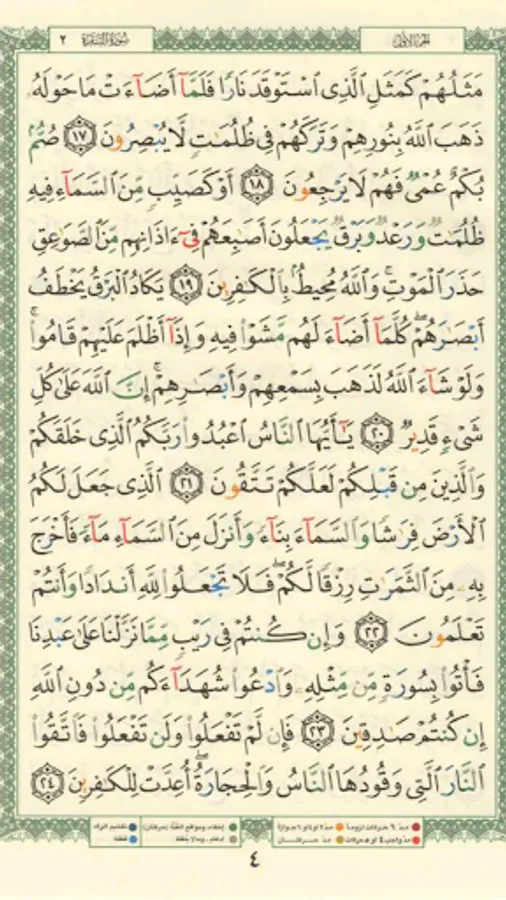 الجزء الأول
سورة البقرة ٢
مَثَلُهُمْ كَمَثَلِ ٱلَّذِى ٱسْتَوْقَدَ نَارًا فَلَمَّآ أَضَآءَتْ مَا حَوْلَهُۥ
ذَهَبَ ٱللَّهُ بِنُورِهِمْ وَتَرَكَهُمْ فِى ظُلُمَـٰتٍ لَّا يُبْصِرُونَ ١٧ صُمٌّۢ
بُكْمٌ عُمْىٌ فَهُمْ لَا يَرْجِعُونَ ١٨ أَوْ كَصَيِّبٍ مِّنَ ٱلسَّمَآءِ فِيهِ
ظُلُمَـٰتٌ وَرَعْدٌ وَبَرْقٌ يَجْعَلُونَ أَصَـٰبِعَهُمْ فِىٓ ءَاذَانِهِم مِّنَ ٱلصَّوَٰعِقِ
حَذَرَ ٱلْمَوْتِ ۚ وَٱللَّهُ مُحِيطٌۢ بِٱلْكَـٰفِرِينَ ١٩ يَكَادُ ٱلْبَرْقُ يَخْطَفُ
أَبْصَـٰرَهُمْ ۖ كُلَّمَآ أَضَآءَ لَهُم مَّشَوْا۟ فِيهِ وَإِذَآ أَظْلَمَ عَلَيْهِمْ قَامُوا۟ ۚ
وَلَوْ شَآءَ ٱللَّهُ لَذَهَبَ بِسَمْعِهِمْ وَأَبْصَـٰرِهِمْ ۚ إِنَّ ٱللَّهَ عَلَىٰ كُلِّ
شَىْءٍ قَدِيرٌ ٢٠ يَـٰٓأَيُّهَا ٱلنَّاسُ ٱعْبُدُوا۟ رَبَّكُمُ ٱلَّذِى خَلَقَكُمْ
وَٱلَّذِينَ مِن قَبْلِكُمْ لَعَلَّكُمْ تَتَّقُونَ ٢١ ٱلَّذِى جَعَلَ لَكُمُ
ٱلْأَرْضَ فِرَٰشًا وَٱلسَّمَآءَ بِنَآءً وَأَنزَلَ مِنَ ٱلسَّمَآءِ مَآءً فَأَخْرَجَ
بِهِۦ مِنَ ٱلثَّمَرَٰتِ رِزْقًا لَّكُمْ ۖ فَلَا تَجْعَلُوا۟ لِلَّهِ أَندَادًا وَأَنتُمْ
تَعْلَمُونَ ٢٢ وَإِن كُنتُمْ فِى رَيْبٍ مِّمَّا نَزَّلْنَا عَلَىٰ عَبْدِنَا
فَأْتُوا۟ بِسُورَةٍ مِّن مِّثْلِهِۦ وَٱدْعُوا۟ شُهَدَآءَكُم مِّن دُونِ ٱللَّهِ
إِن كُنتُمْ صَـٰدِقِينَ ٢٣ فَإِن لَّمْ تَفْعَلُوا۟ وَلَن تَفْعَلُوا۟ فَٱتَّقُوا۟
ٱلنَّارَ ٱلَّتِى وَقُودُهَا ٱلنَّاسُ وَٱلْحِجَارَةُ ۖ أُعِدَّتْ لِلْكَـٰفِرِينَ ٢٤
مدّ ٦ حركات لزوماً مدّ ٢ او ٤ او ٦ جوازاً إخفاء، ومواقع الغُنَّة (حركتان) تفخيم الراء
مدّ واجب ٤ او ٥ حركات مدّ حركتان إدغام، وما لا يُلفظ قلقلة
٤